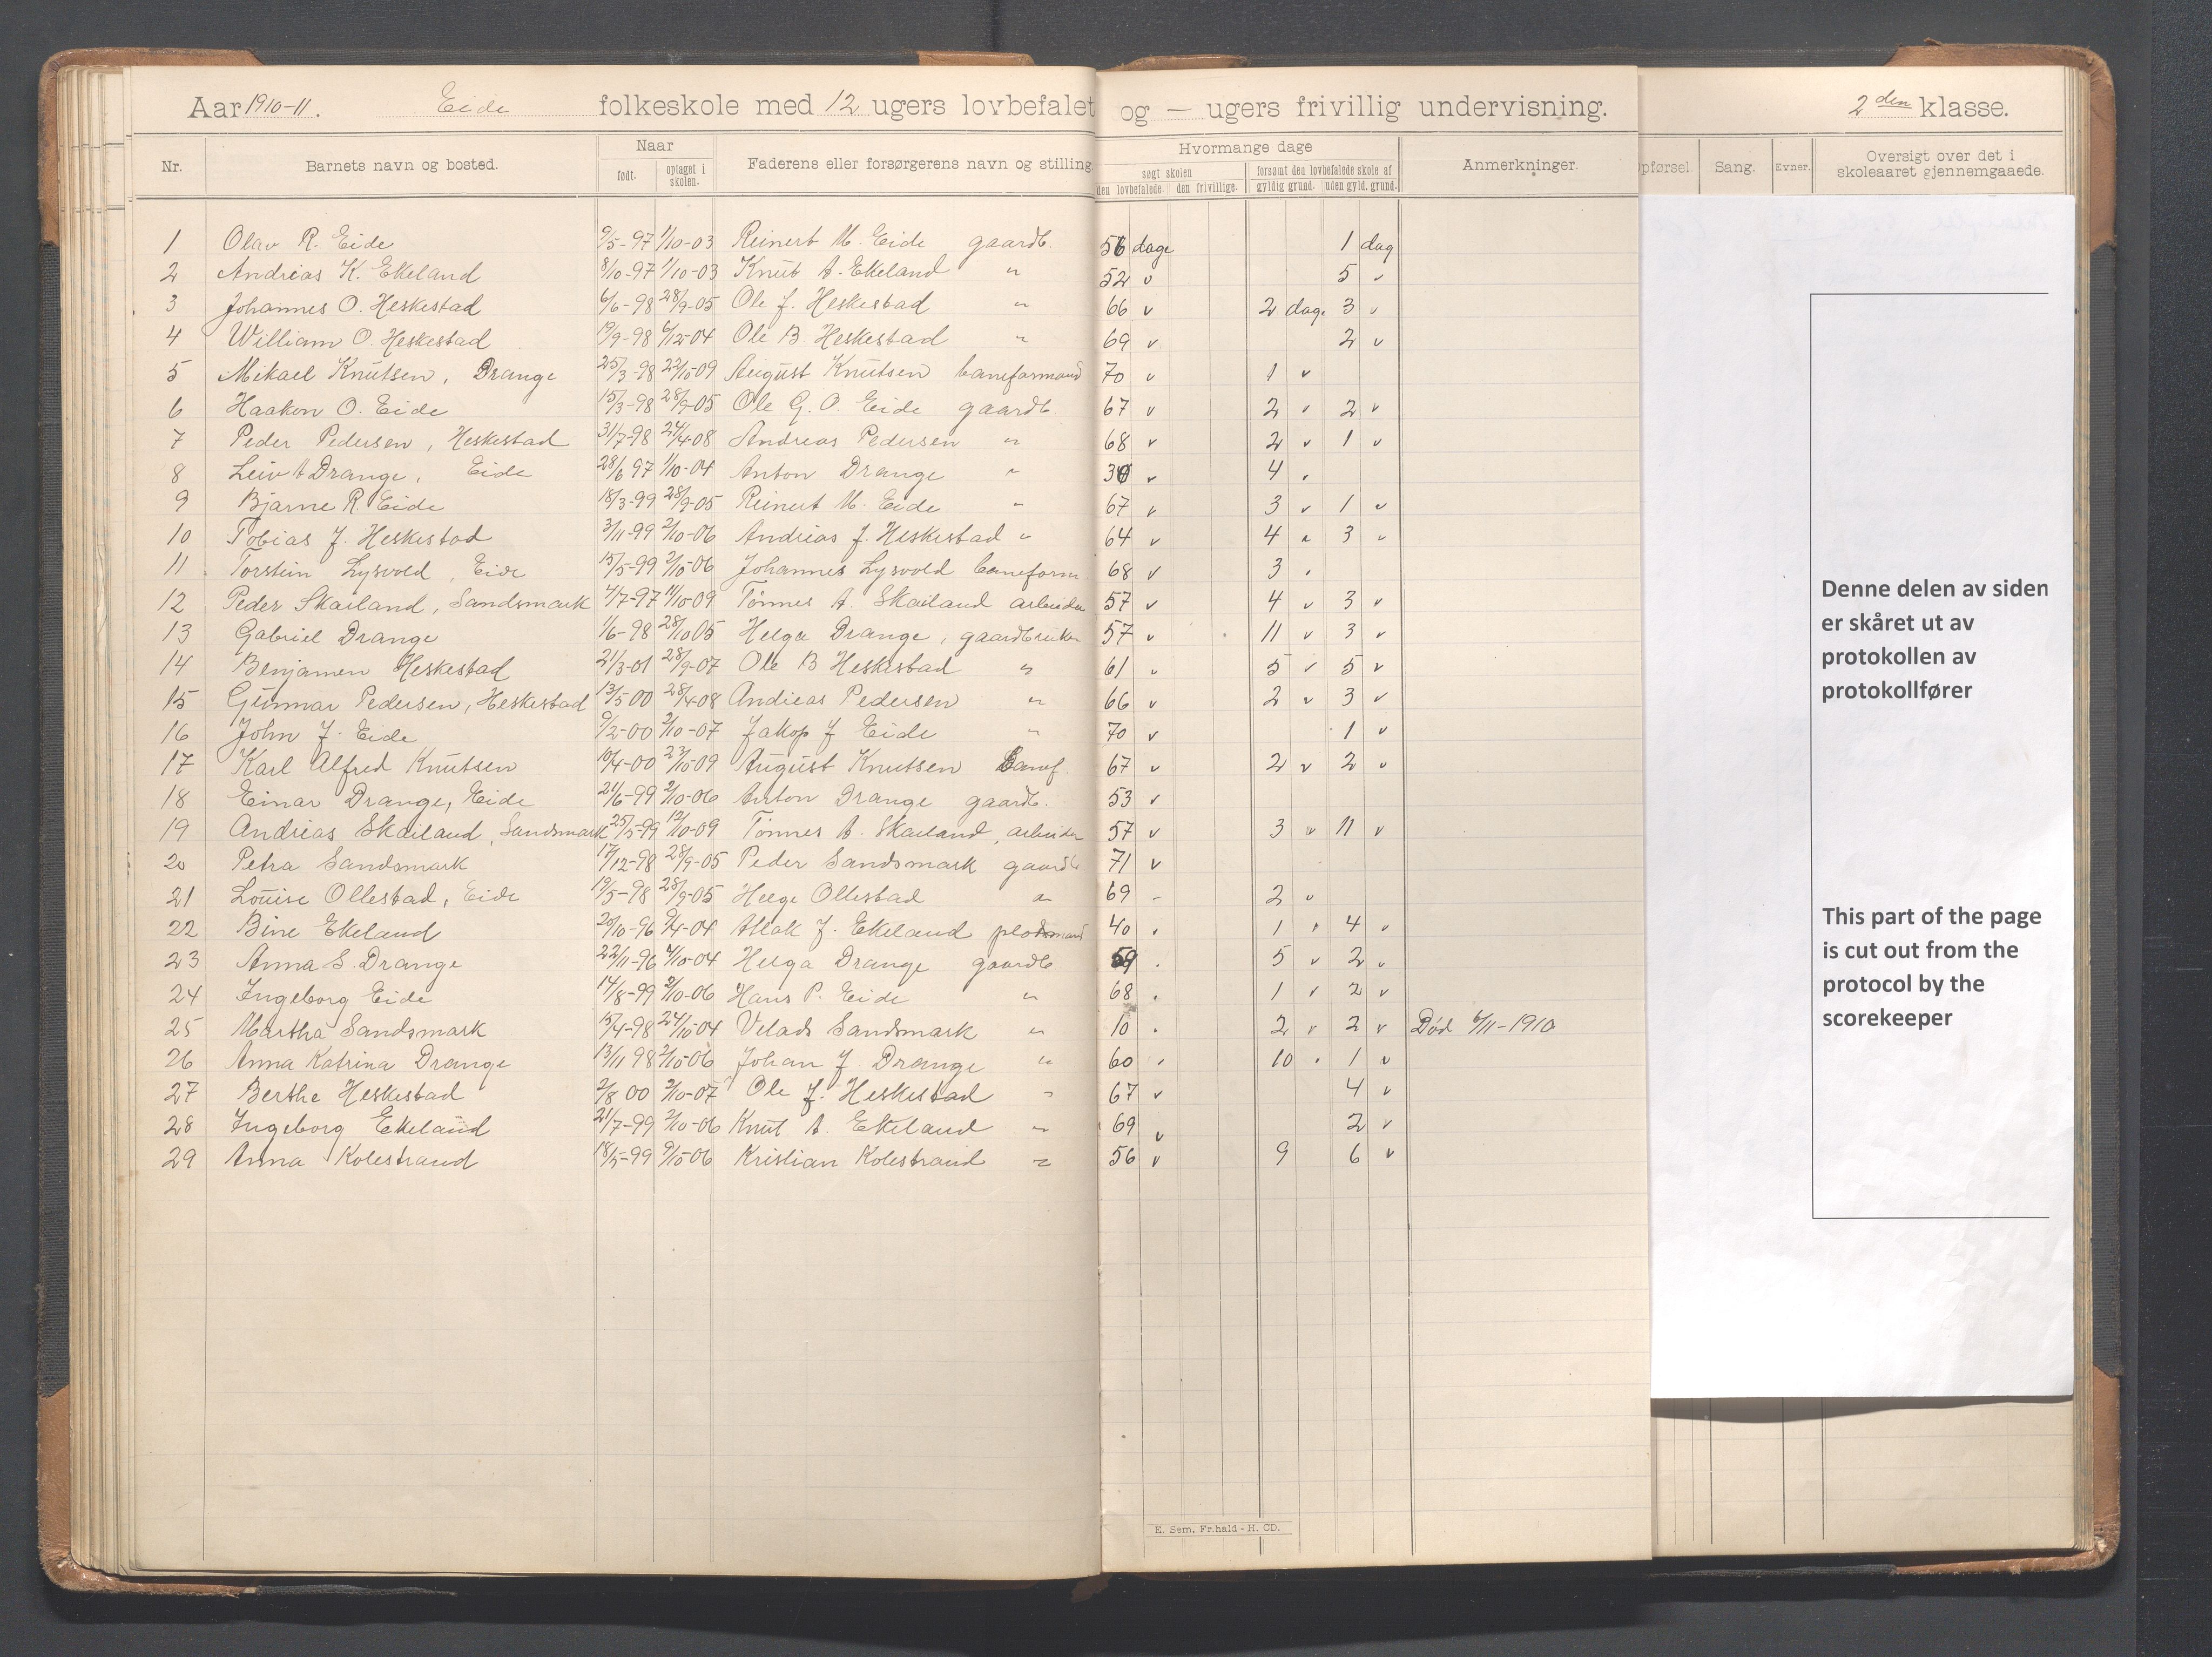 Aar 1910-11. Eide folkeskole med 12 ugers lovbefalet og — ugers frivillig undervisning. 2den klasse.
Nr. Barnets navn og bosted. Naar Faderens eller forsørgerens navn og stilling. Hvormange dage Anmerkninger. Opførsel Sang. Evner. Oversigt over det i skoleaaret gjennemgaaede.
født. optaget i skolen. søgt skolen forsømt den lovbefalede skole af
den lovbefalede. den frivillige. gyldig grund. uden gyld. grund.
1 Olav R. Eide 9/5-97 1/10-03 Reinert M. Eide gaardb. 56 dage 1 dag
2 Andreas K. Ekeland 8/10-97 1/10-03 Knut A. Ekeland " 52 v 5 v
3 Johannes O. Heskestad 6/6-98 28/9-05 Ole J. Heskestad " 66 v 2 dage 3 v
4 William O. Heskestad 19/9-98 6/12-04 Ole B Heskestad " 69 v 2 v
5 Mikael Knutsen, Drange 25/3-98 22/10-09 August Knutsen baneformand 70 v 1 v
6 Haakon O. Eide 15/3-98 28/9-05 Ole G. O. Eide gaardb. 67 v 2 v 2 v
7 Peder Pedersen, Heskestad 31/7-98 27/4-08 Andreas Pedersen " 68 v 2 v 1 v
8 Leiv A Drange, Eide 28/6 97 1/10-04 Anton Drange " v 4 "
9 Bjarne R. Eide 18/3-99 28/9-05 Reinert M. Eide " 67 v 3 v 1 v
10 Tobias J. Heskestad 3/11-99 2/10-06 Andreas J. Heskestad " 64 v 4 " 3 v
11 Torstein Lysvold, Eide 15/5-99 2/10-06 Johannes Lysvold baneform. 68 v 3 "
12 Peder Skailand, Sandsmark 4/7-97 11/10-09 Tønnes A. Skailand arbeider 57 v 4 v 3 v
13 Gabriel Drange 1/6-98 28/10 05 Helga Drange, gaardbruker 57 v 11 v 3 v
14 Benjamen Heskestad 21/3-01 28/9-07 Ole B Heskestad " 61 v 5 v 5 v
15 Gunnar Pedersen, Heskestad 13/5 00 28/4-08 Andreas Pedersen " 66 v 2 v 3 v
16 John J. Eide 9/2-00 2/10-07 Jakop J Eide " 70 v 1 v
17 Karl Alfred Knutsen 10/4-00 23/10-09 August Knutsen Banef. 67 v 2 v 2 v
18 Einar Drange, Eide 21/6-99 2/10-06 Anton Drange gaardb. 53 v
19 Andreas Skailand, Sandsmark 25/5-99 12/10-09 Tønnes A. Skailand, arbeider 57 v 3 v 11 v
20 Petra Sandsmark 17/12-98 28/9-05 Peder Sandsmark gaardb 71 v
21 Louise Ollestad, Eide 19/5-98 28/9-05 Helge Ollestad " 69 - 2 v
22 Bine Ekeland 20/10-96 9/4-04 Atlak J. Ekeland pladsmand 40 " 1 " 4 v
23 Anna S. Drange 22/11-96 4/10-04 Helga Drange gaardb 59 " 5 v 2 v
24 Ingeborg Eide 14/8-99 2/10-06 Hans P. Eide " 68 " 1 v 2 v
25 Martha Sandsmark 15/4-98 24/10-04 Velads Sandsmark " 10 " 2 v 2 v Død 6/11-1910
26 Anna Katrina Drange 13/11 98 2/10-06 Johan J Drange " 60 " 10 " 1 v
27 Berthe Heskestad 2/8 00 2/10-07 Ole J. Heskestad " 67 v 4 v
28 Ingeborg Ekeland 21/7-99 2/10-06 Knut A. Ekeland " 69 v 2 v
29 Anna Kolestrand 18/5-99 9/10-06 Kristian Kolestrand " 56 v 9 6 v
E. Sem, Fr.hald - H. CD.
Denne delen av siden
er skåret ut av
protokollen av
protokollfører
This part of the page
is cut out from the
protocol by the
scorekeeper